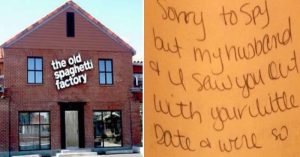 the old
spaghetti
factory
Sorry to spy
but my husband
& I saw you out
with your little
date & were so